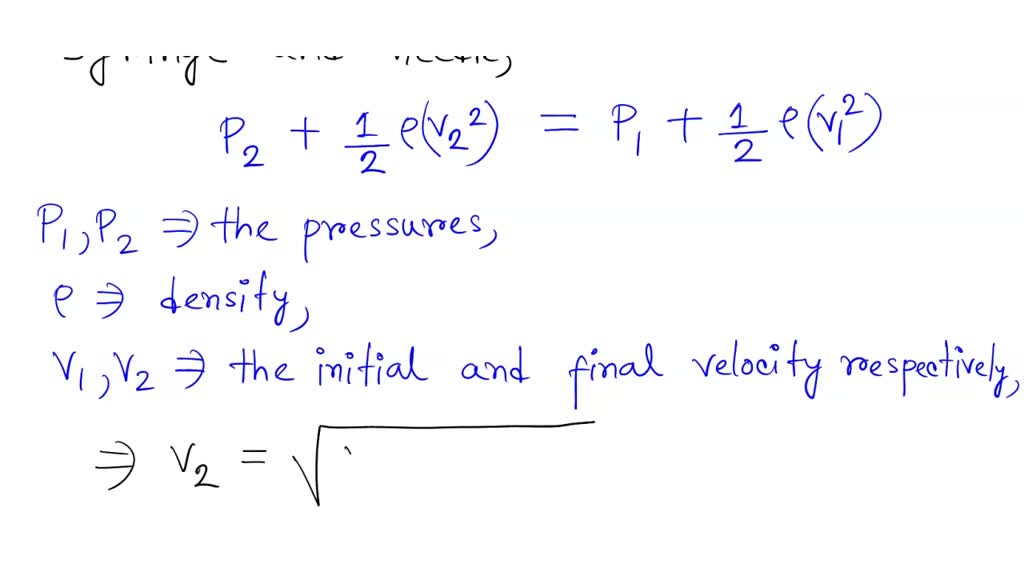 P₂ + 1/2 ρ(v₂²) = P₁ + 1/2 ρ(v₁²)
P₁, P₂ ⇒ the pressures,
ρ ⇒ density,
V₁, V₂ ⇒ the initial and final velocity respectively,
⇒ V₂ = √